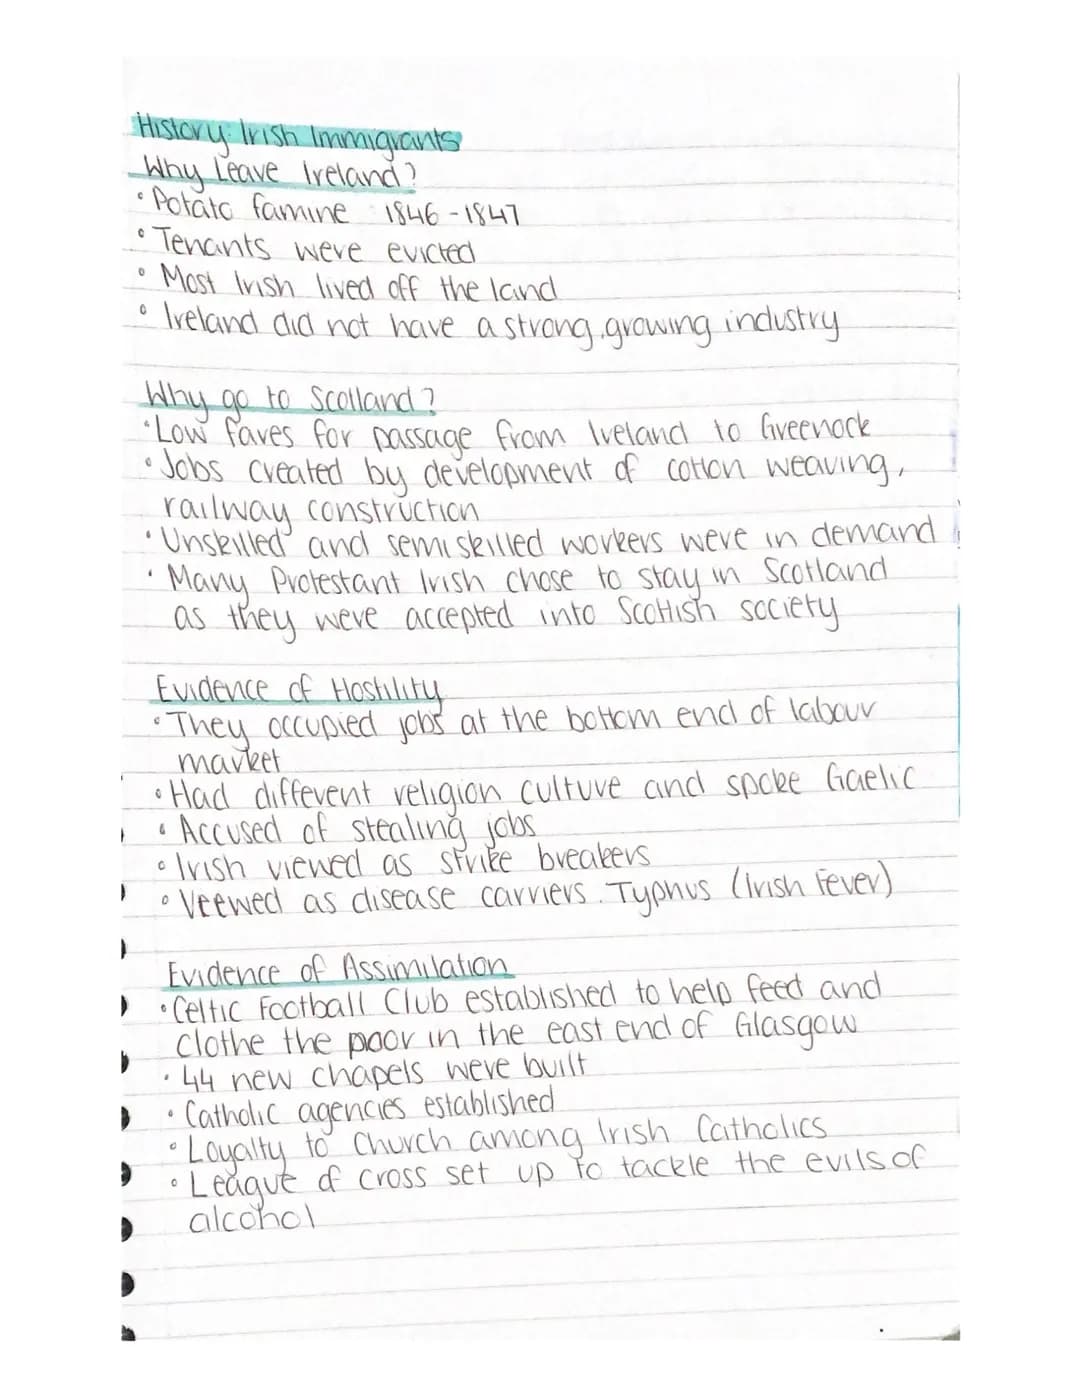 History: Irish Immigrants
Why Leave Ireland?
• Potato famine 1846-1847
• Tenants were evicted
• Most Irish lived off the land
• Ireland did not have a strong, growing industry
Why go to Scotland?
• Low fares for passage from Ireland to Greenock
• Jobs created by development of cotton weaving,
railway construction
• Unskilled and semi skilled workers were in demand
• Many Protestant Irish chose to stay in Scotland
as they were accepted into Scottish society
Evidence of Hostility
• They occupied jobs at the bottom end of labour
market
• Had different religion culture and spoke Gaelic
• Accused of stealing jobs
• Irish viewed as strike breakers
• Veewed as disease carriers. Typhus (Irish Fever)
Evidence of Assimilation
• Celtic Football Club established to help feed and
clothe the poor in the east end of Glasgow
• 44 new chapels were built
• Catholic agencies established
• Loyalty to Church among Irish Catholics
• League of Cross set up to tackle the evils of
alcohol